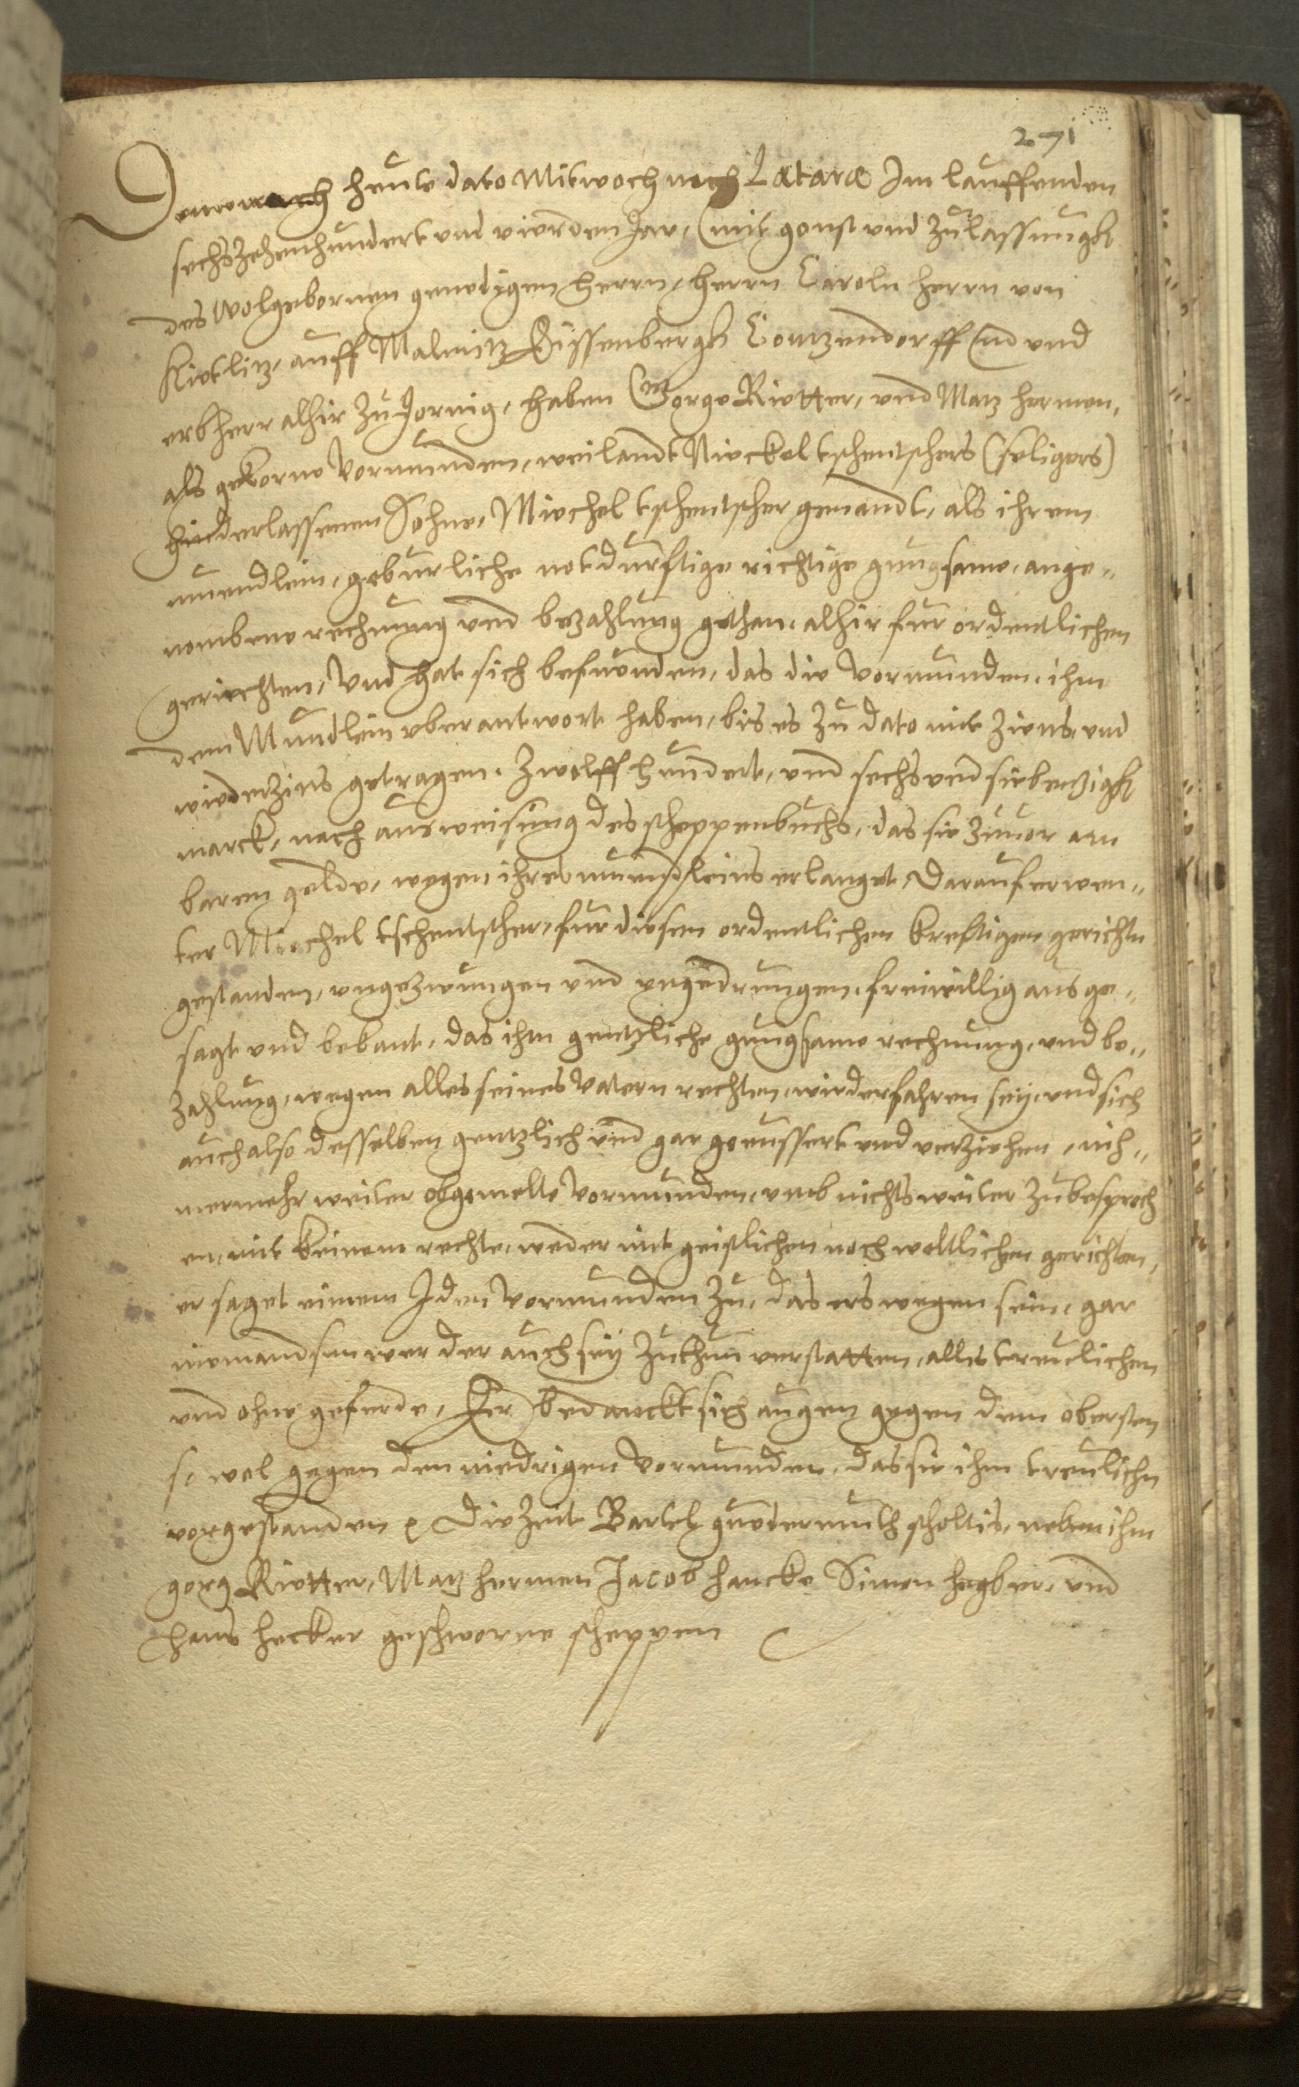 271
Demnach heute dato Mitwoch nach Lætaræ Im lauffenden
sechszehenhundert und vierden Jar, (mit gonst und zulassungk
des Wolgebornen genedigen herrn, herrn Caroln herrn von
Kietlitz, auff Malmitz Eissenbergk Contzendorff und
erbherr alhir zu Jornig, haben George Rietter, und Matz hermen,
als gekorne Vormunden, weilandt Nieckel tschentschers (seligers)
hinderlassenen Sohne, Miechel tschentscher genandt, als ihrem
muendlein, geburliche notdurftige richtige gnugsame, ange-
nombene rechnung und bezahlung gethan, alhir fur ordentlichen
gerichten, Und hat sich befunden, das die Vormunden, ihm
dem Mundlein uberantwort haben, bis es zu dato mit Zins, und
wiederzins getragen. Zwolff hundert, und sechs und siebenzigk
marck, nach ausweisung des scheppenbuchs, das sie zuuor an
barem gelde, wegen ihres muendleins erlanget, Darauf erwen-
ter Miechel tschentscher, fur diesen ordentlichen kreftigen gerichtn
gestanden, ungezwungen und ungedrungen, freiwillig ausge-
sagt und bekant, das ihm gentzliche gnugsame rechnung, und be-
zahlung, wegen alles seines Vatern rechten, wiederfahren sey, und sich
auch also desselben gentzlich und gar geeussert und verziehen, nih-
mermehr weiter obgemelte Vormunden, umb nichts weiter zu besprech
en, mit keinem rechte, weder mit geistlichen noch weltlichen gerichten,
er saget einem Jden Vormunden zu, das ers wegen sein, gar
niemandsen wer der auch sey zuthun verstatten, alles treulichen
und ohne geferde, Er bedanckt sich augen gegen dem obersten
so wol gegen den niedrigen Vormunden, das sie ihm treulichn
vorgestanden Die Zeit Bartel guetermuth scholtis, neben ihm
gorg Rietter, Matz hermen Jacob hancke Simon hegber, und
hans hecker geschworne scheppen